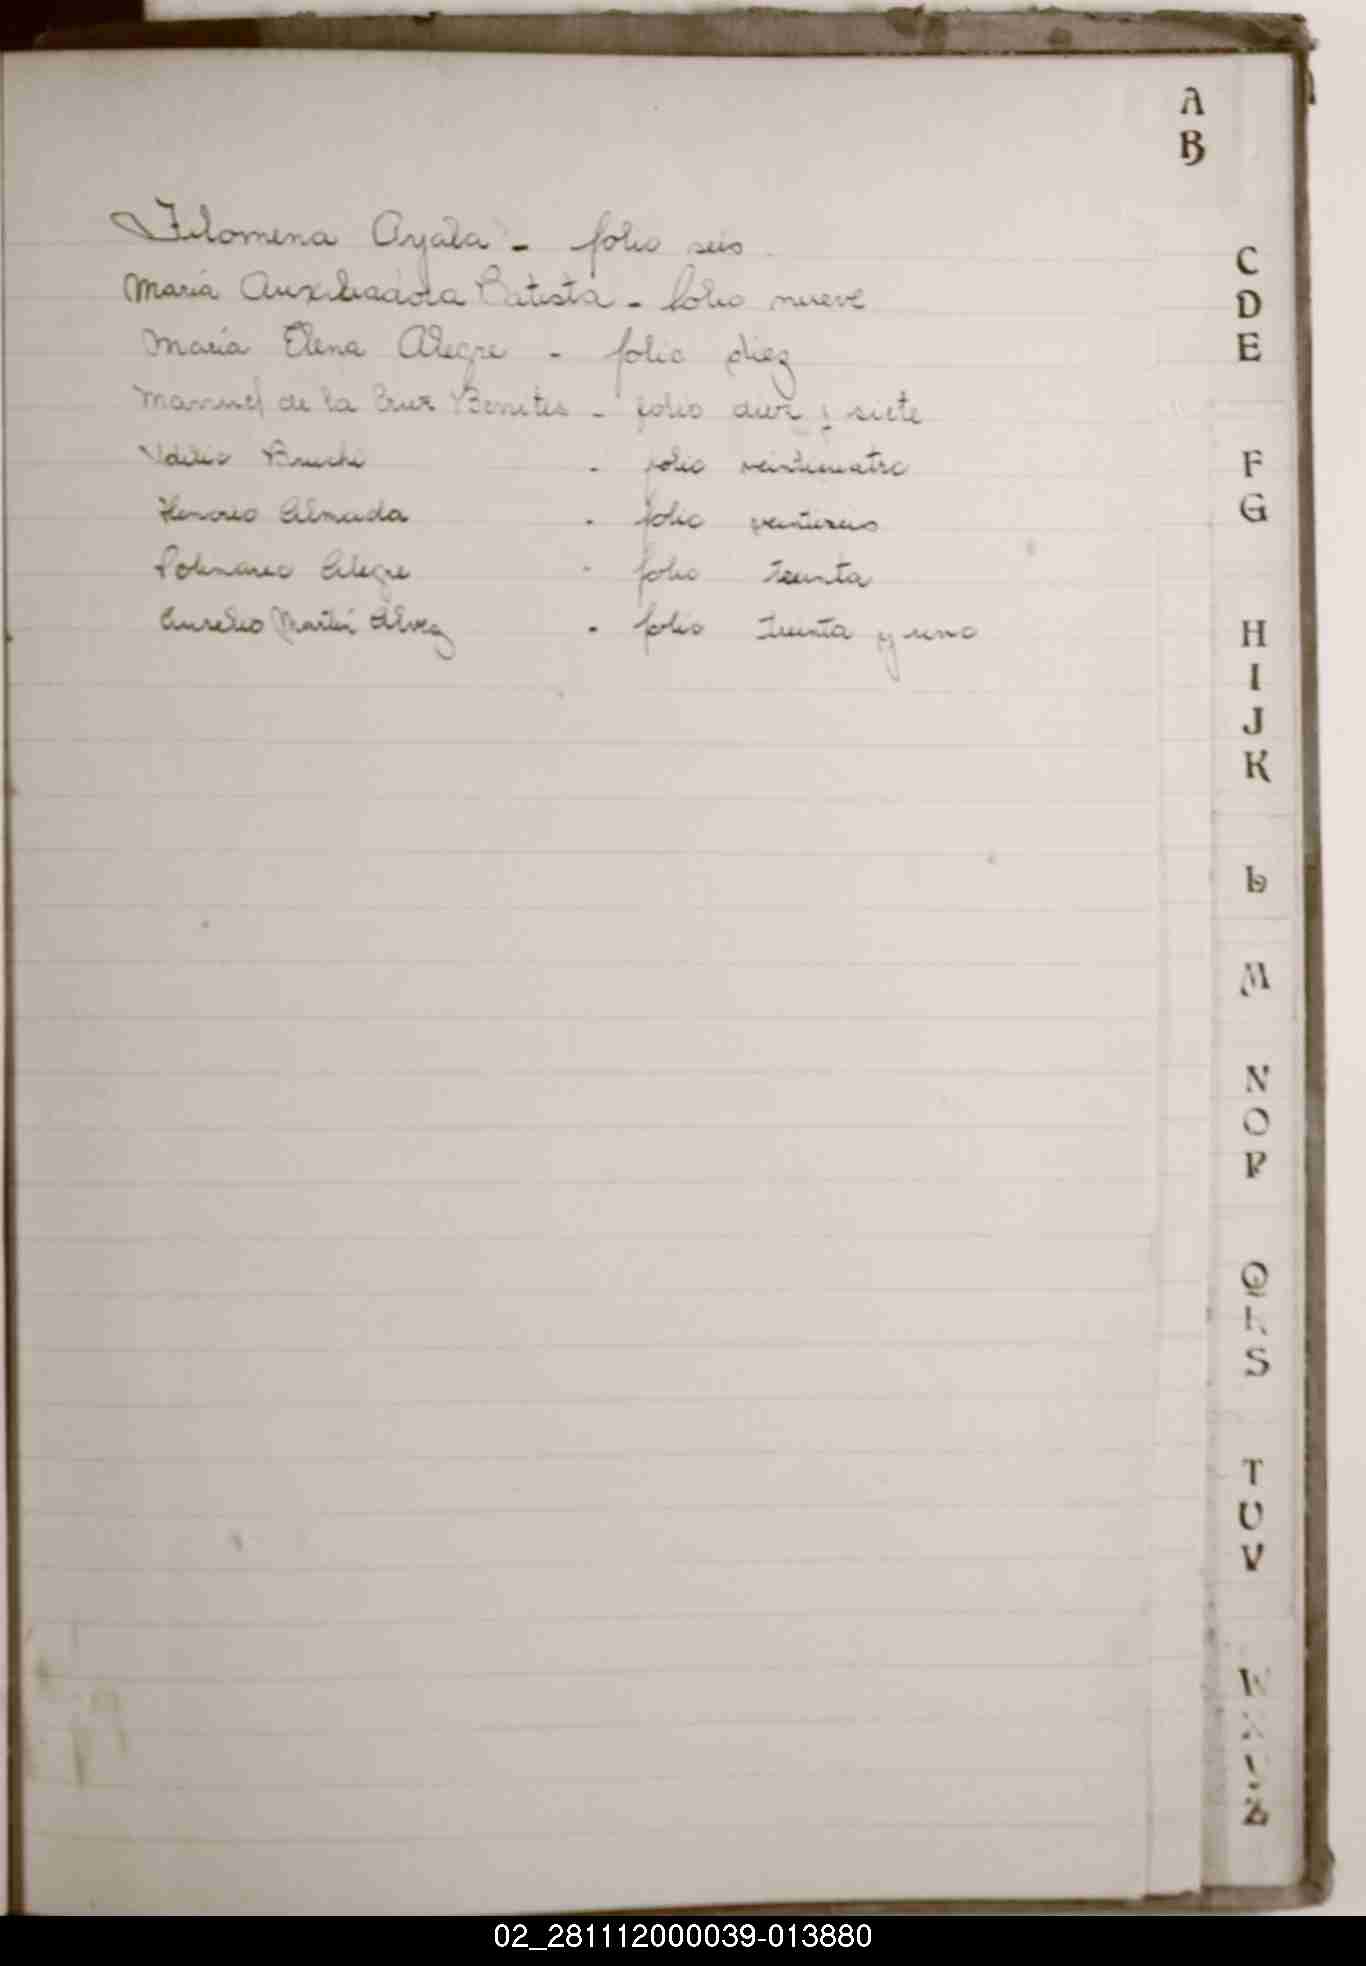 A
B
Filomena Ayala - folio seis
María Auxiliadora Batista - folio nueve
María Elena Alegre - folio diez
Manuel de la Cruz Benites - folio diez y siete
- folio veinticuatro
Almada - folio veinteseis
Polinario Alegre - folio treinta
Aurelio Martín Alvez - folio treinta y uno
C
D
E
F
G
H
I
J
K
L
M
N
O
P
Q
R
S
T
U
V
W
X
Y
Z
02_281112000039-013880